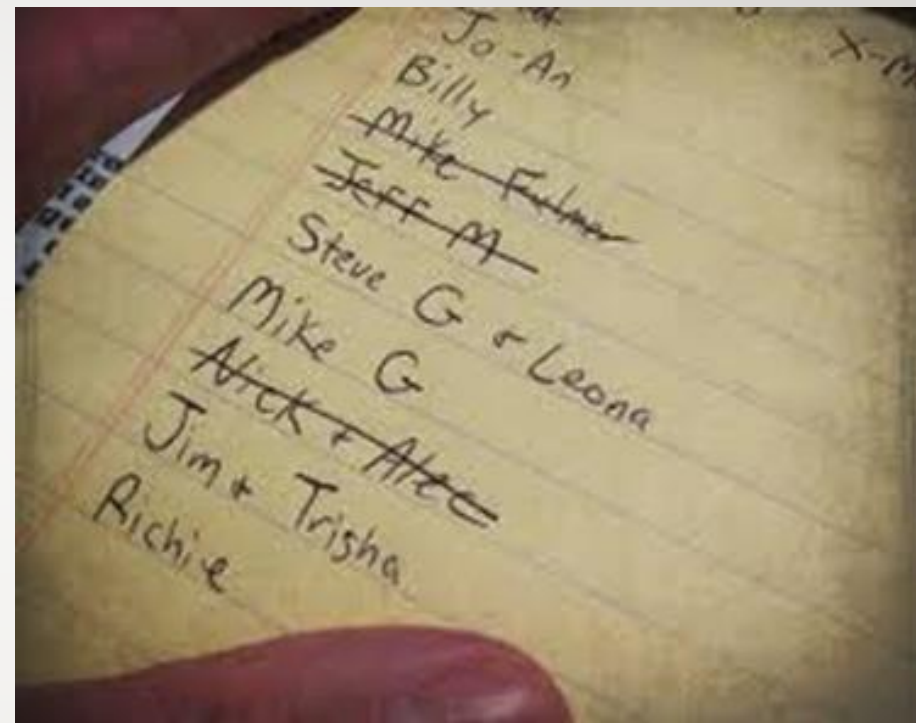 Jo-An
X-M
Billy
Mike Fulmer
Jeff M
Steve G + Leona
Mike G
Nick + Alec
Jim + Trisha
Richie